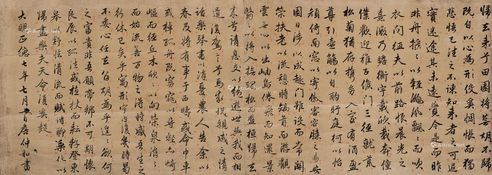 歸去來兮田園將蕪胡不歸
既自以心為形役奚惆悵而獨
悲悟已往之不諫知來者之可追
實迷途其未遠覺今是而昨
非舟搖搖以輕颺風飄飄而吹
衣問征夫以前路恨晨光之
熹微乃瞻衡宇載欣載奔僮
僕歡迎稚子候門三徑就荒
松菊猶存攜幼入室有酒盈
樽引壺觴以自酌眄庭柯以怡
顏倚南窗以寄傲審容膝之易安
園日涉以成趣門雖設而常關
策扶老以流憩時矯首而遐觀
雲無心以出岫鳥倦飛而知還景
翳翳以將入撫孤松而盤桓歸去
來兮請息交以絕遊世與我而相
遺復駕言兮焉求悅親戚之情
話樂琴書以消憂農人告余以
春及將有事乎西疇或命巾車
或棹孤舟既窈窕以尋壑亦崎
嶇而經丘木欣欣以向榮泉涓涓
而始流善萬物之得時感吾生之
行休已矣乎寓形宇內復幾時曷
不委心任去留胡為遑遑欲何
之富貴非吾願帝鄉不可期懷
良辰以孤往或植杖而耘耔登東
皋以舒嘯臨清流而賦詩聊乘化以
歸盡樂夫天命復奚疑
大明正德七年七月